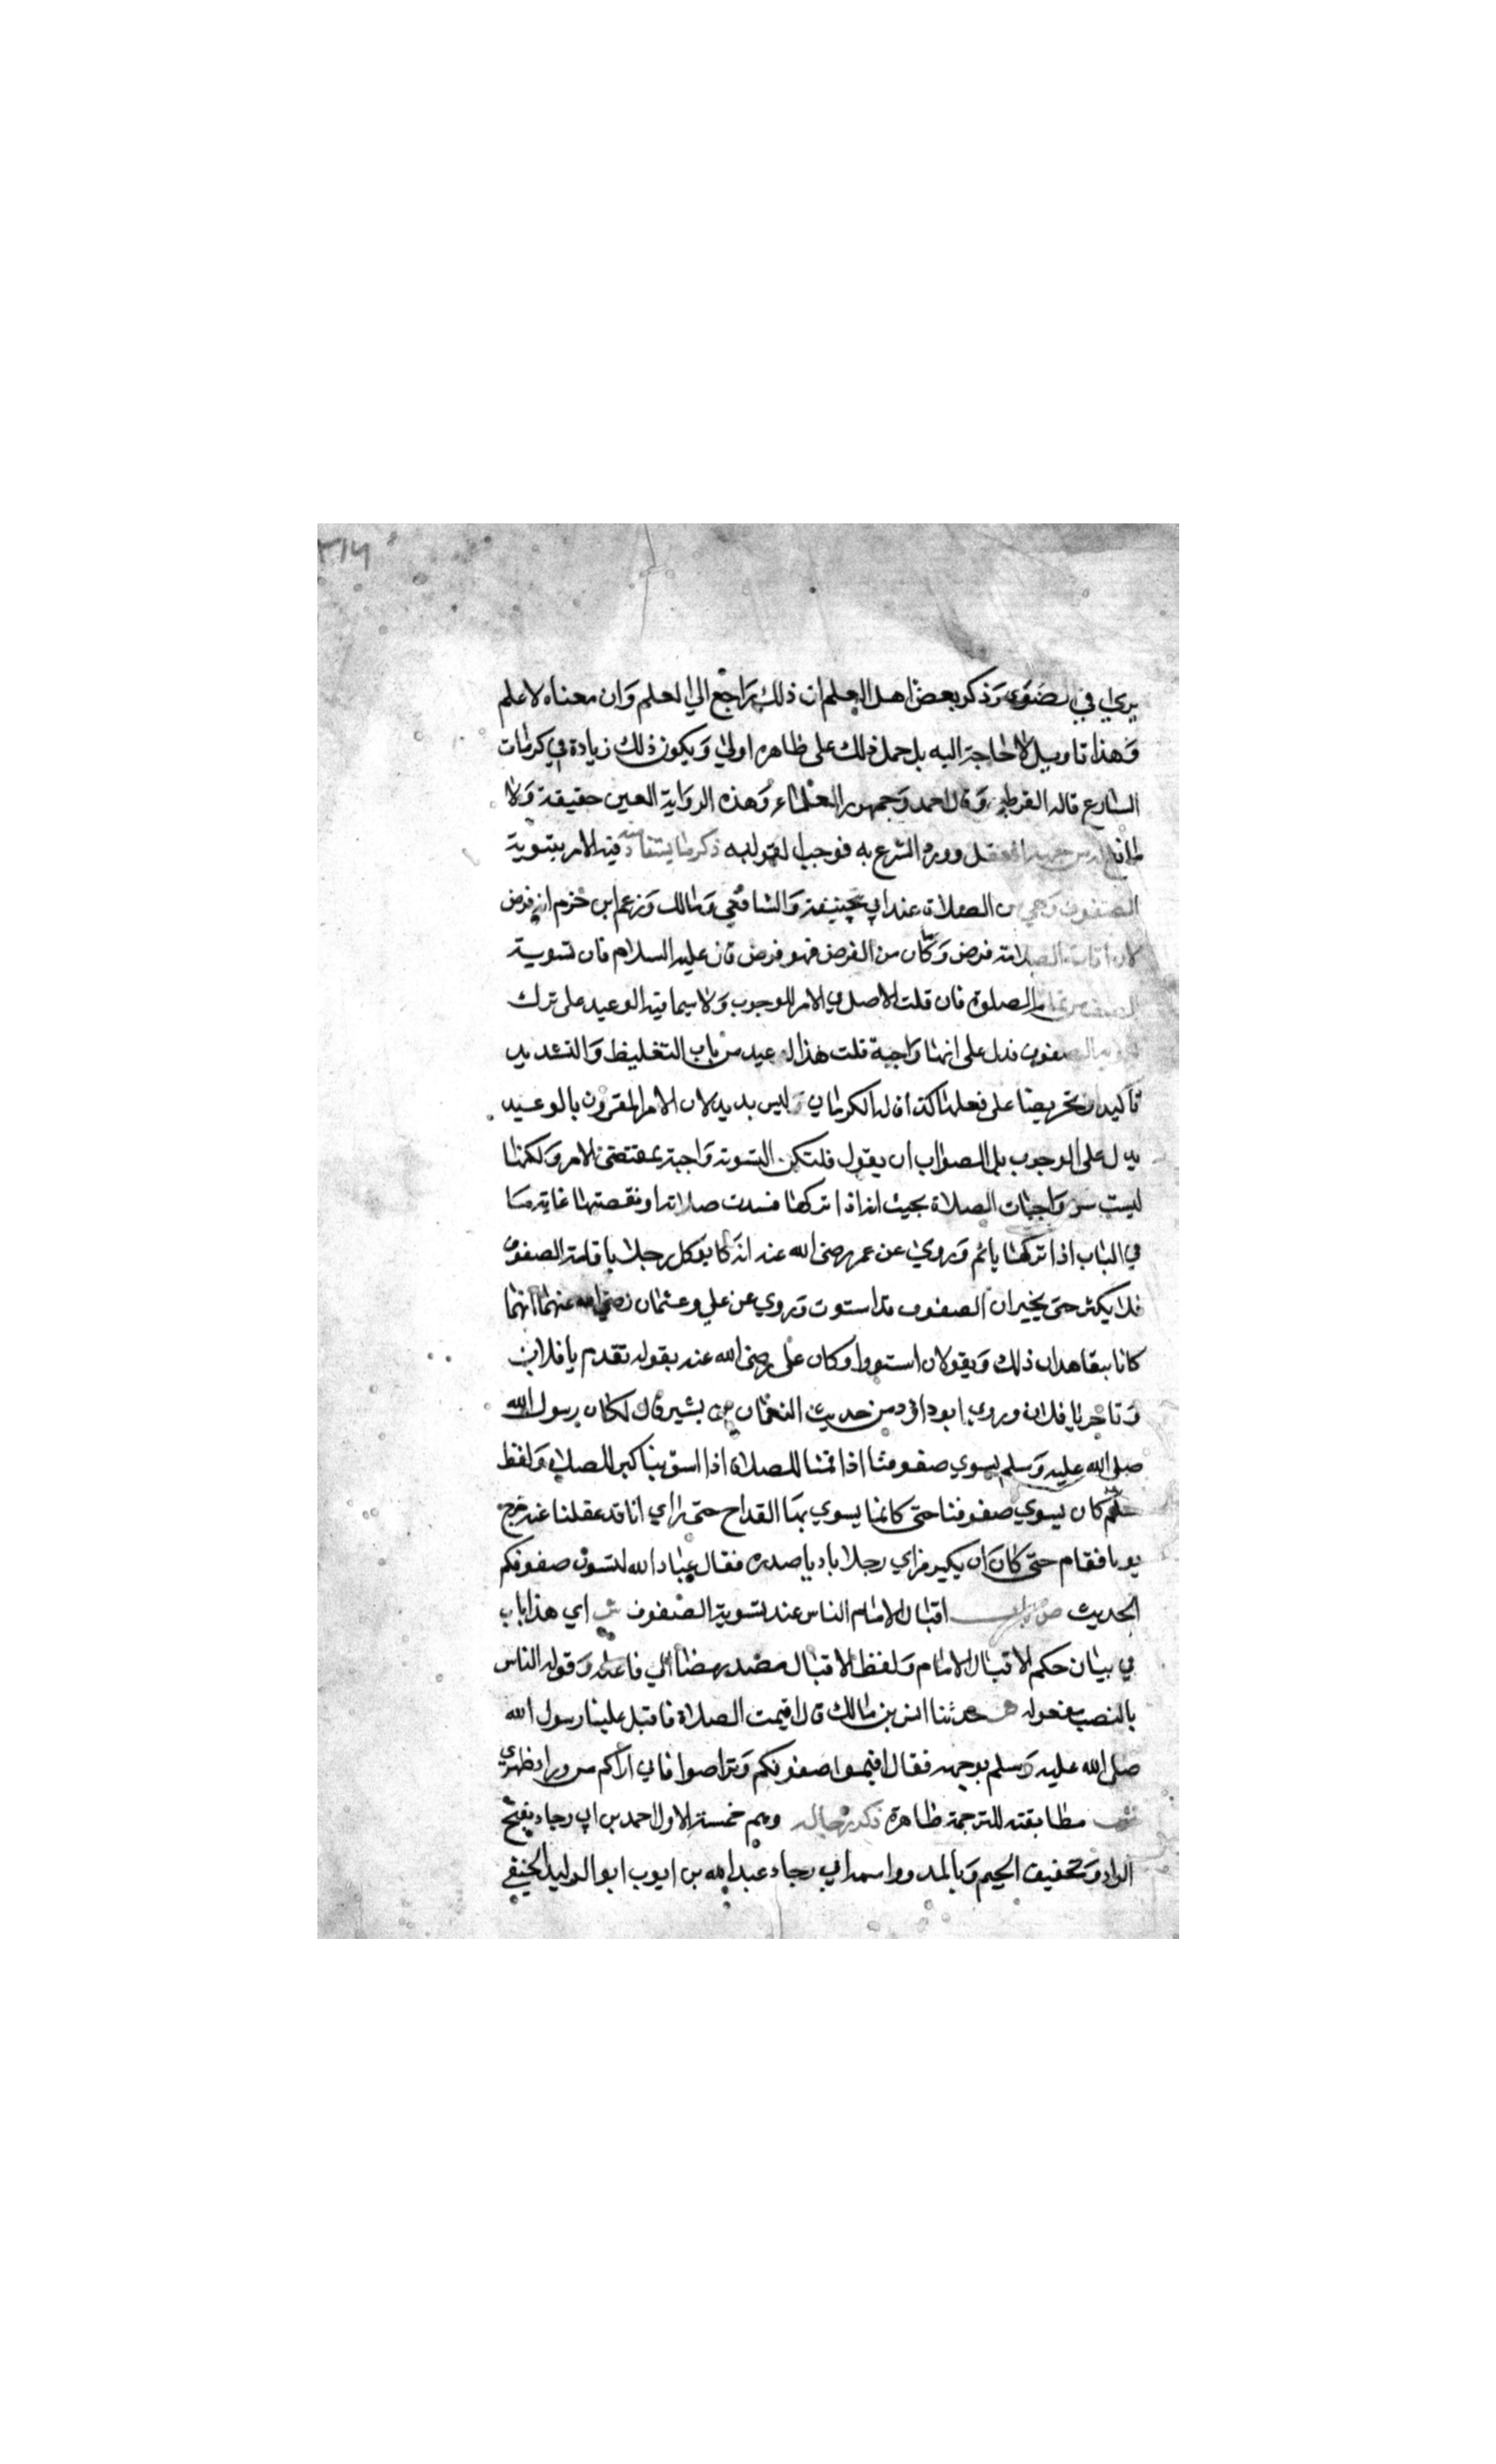 ٣١٤
يري في الضوء وذكر بعض اهل العلم ان ذلك راجع الي العلم وان معناه لاعلم
وهذا تاويل لا حاجة اليه بل حمل ذلك على ظاهره اولي ويكون ذلك زيادة في كرمات
الشارع قاله القرطبي وقال احمد وجمهور العلماء وهذه الرواية العين حقيقة ولا
مانع له من جهة العقل وورد الشرع به فوجب القول به ذكر ما يستفاد منه فيه الامر بتسوية
الصفوف وهي من الصلاة عند ابي حنيفة والشافعي ومالك وزعم ابن حزم انه فرض
لان اقامة الصلاة فرض وما كان من الفرض فهو فرض قال عليه السلام فان تسوية
الصف من تمام الصلوة فان قلت الاصل في الامر الوجوب ولا سيما فيه الوعيد على ترك
تسوية الصفوف فدل على انها واجبة قلت هذا الوعيد من باب التغليظ والتشديد
تاكيدا وتحريضا على فعلها كذا قاله الكرماني وليس بديد لان الامر المقرون بالوعيد
يدل على الوجوب بل الصواب ان يقول فلتكن التسوية واجبة بمقتضى الامر ولكنها
ليست من واجبات الصلاة بحيث انه اذا تركها فسدت صلاته او نقصتها غاية ما
في الباب اذا تركها ياثم وروي عن عمر رضى الله عنه انه كان يوكل رجلا باقامة الصفوف
فلا يكثر حتى يخبر ان الصفوف قد استوت وروي عن علي وعثمان رضي الله عنهما انهما
كانا يتعاهدان ذلك ويقولان استووا وكان على رضى الله عنه يقوله تقدم يا فلان
وتاخر يا فلان وروي ابو داود من حديث النعمان بن بشير قال كان رسول الله
صلى الله عليه وسلم يسوي صفوفنا اذا قمنا للصلاة اذا استوينا كبر للصلاة ولفظ
مسلم كان يسوي صفوفنا حتى كانما يسوي بها القداح حتى راي انا قد عقلنا عنه خرج
يوما فقام حتى كان ان يكبر فراي رجلا باديا صدره فقال عباد الله لتسون صفوفكم
الحديث ص باب اقبال الامام الناس عند تسوية الصفوف ش اي هذا باب
في بيان حكم الاقبال الامام ولفظ الاقبال مصدر مضاف الي فاعله وقوله الناس
بالنصب مفعوله حدثنا انس بن مالك قال اقيمت الصلاة فاقبل علينا رسول الله
صلى الله عليه وسلم بوجهه فقال اقيموا صفوفكم وتراصوا فاني اراكم من وراء ظهري
ش مطابقته للترجمة ظاهرة ذكر رجاله وهم خمسة الاول احمد بن ابي رجاء بفتح
الراء وتخفيف الجيم وبالمد واسم ابي رجاء عبد الله بن ايوب ابو الوليد الحنفي